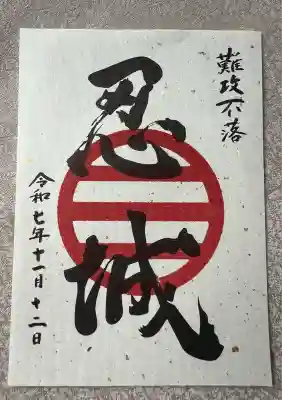 難攻不落
忍城
令和七年十一月十二日